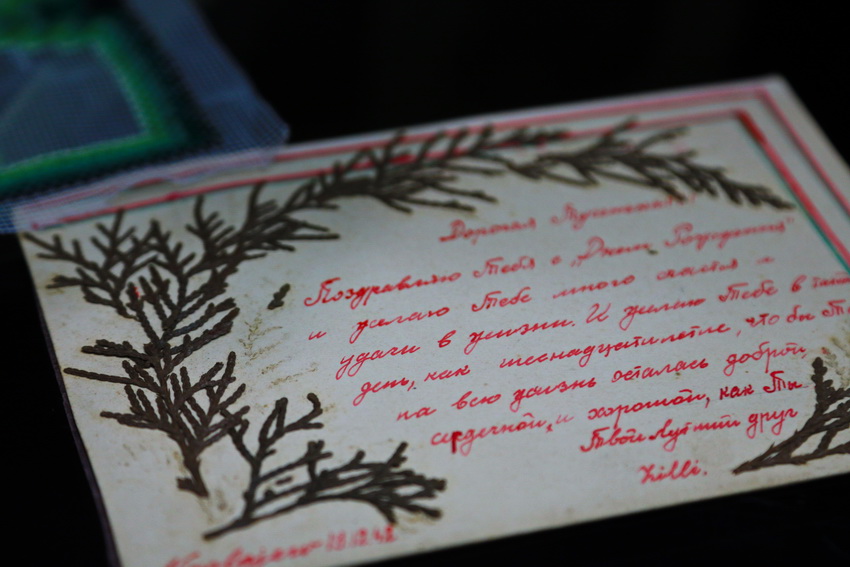 Дорогая
Поздравляю Тебя с „Днем Рождения"
и желаю Тебе много счастья –
удачи в жизни. И желаю Тебе в такой
день, как шеснадцатилетие, что бы
на всю жизнь осталась доброй,
сердечной, и хорошой, как Ты
Твой лутший друг
Lilli.
18.12.42